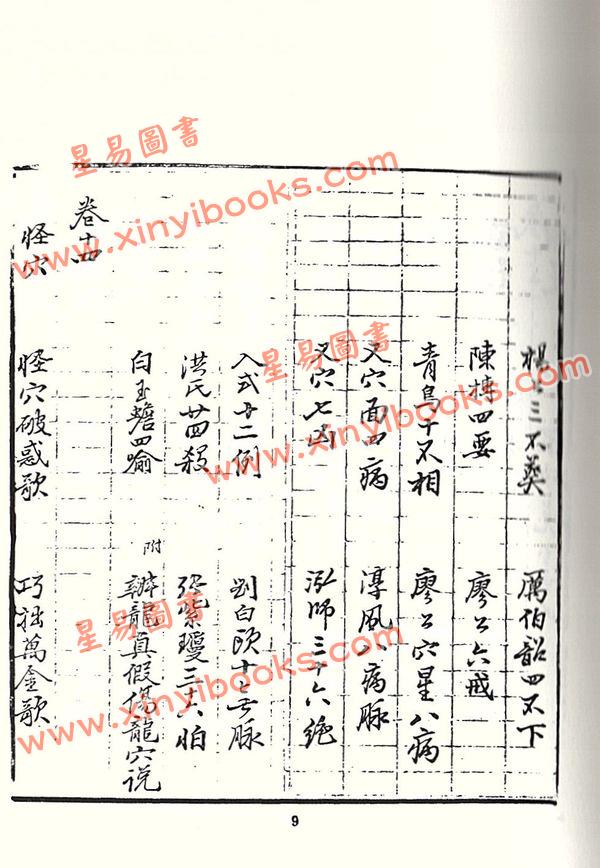 楊公三不葬 厲伯韶四不下
陳摶四要 廖公六戒
青烏十不相 廖公穴星八病
又穴面四病 淳風八病脈
又穴七凶 泓師三十六絕
入式廿二例 劉白頭十七
洪氏廿四殺 張紫瓊三十六怕
白玉蟾四喻 附 辯龍真假傷龍穴说
卷十四
怪穴 怪穴破惑歌 巧拙萬金歌
9
星易圖書
www.xinyibooks.com
星易圖書
www.xinyibooks.com
星易圖書
www.xinyibooks.com